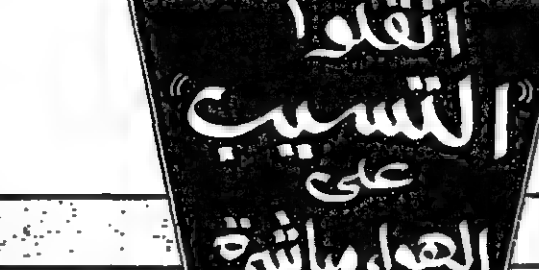 انقلوا
"التسيب"
على
الهواء مباشرة